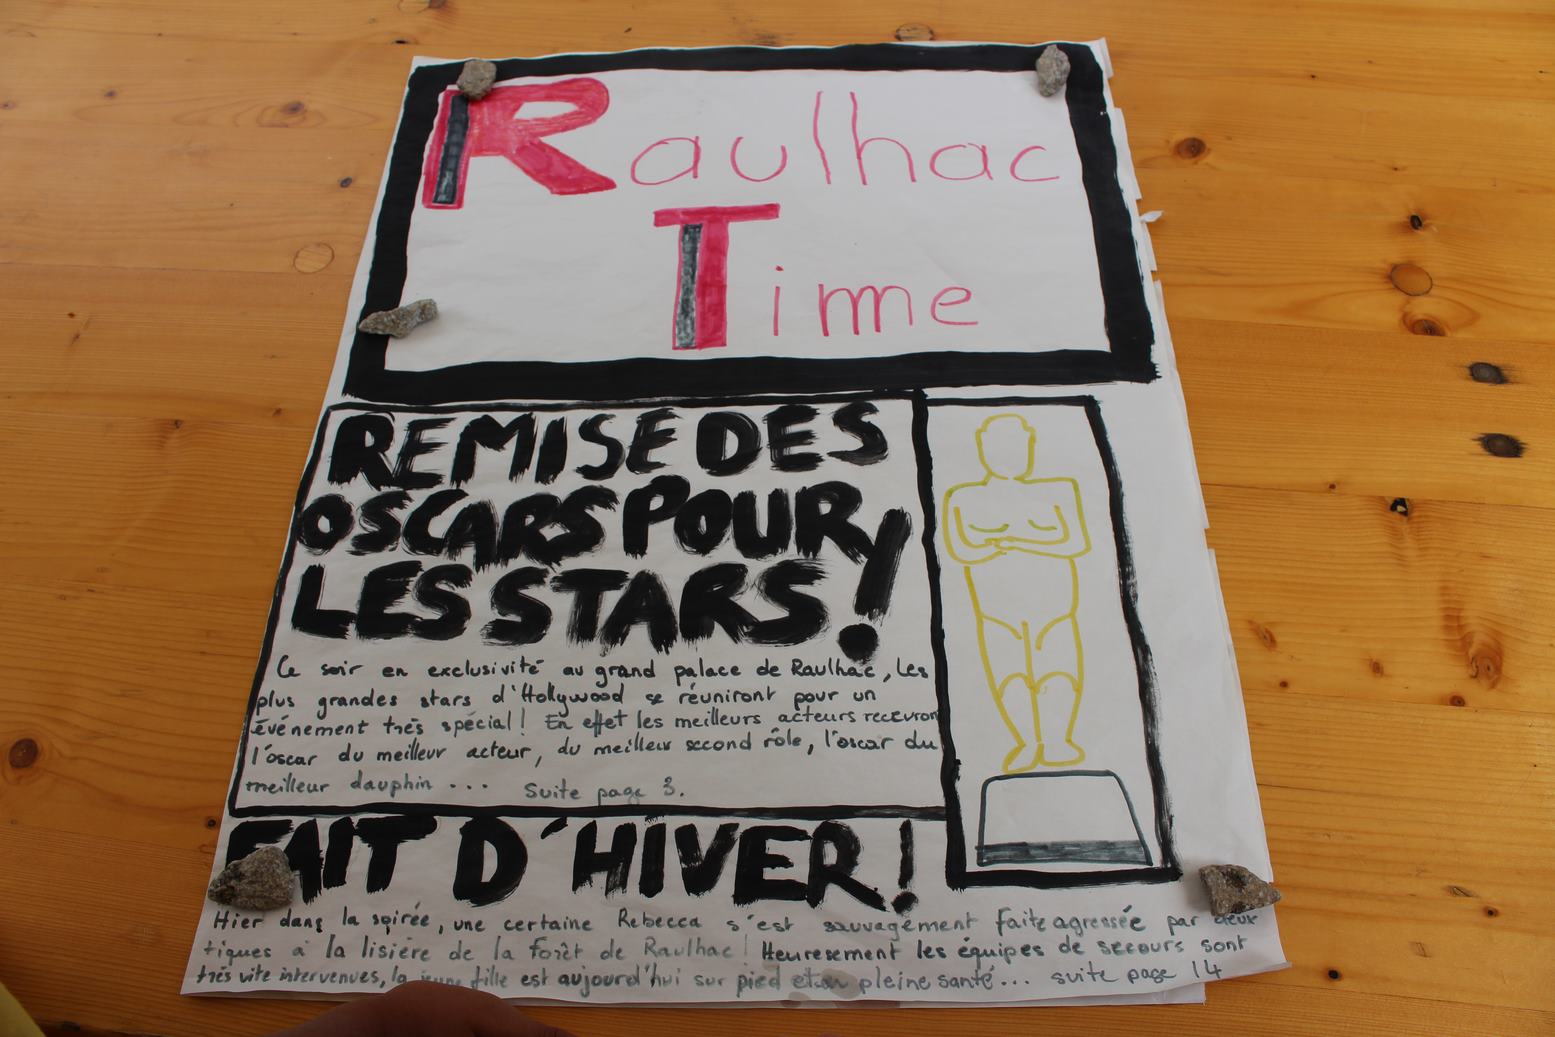 Raulhac
Time
REMISE DES
OSCARS POUR
LES STARS!
Ce soir en exclusivité au grand palace de Raulhac, les
plus grandes stars d'Hollywood se réuniront pour un
événement très spécial! En effet les meilleurs acteurs recevron
l'oscar du meilleur acteur, du meilleur second rôle, l'oscar du
meilleur dauphin ... Suite page 3.
FAIT D'HIVER!
Hier dans la soirée, une certaine Rebecca s'est sauvagement faite agressée par deux
tiques à la lisière de la Forêt de Raulhac! Heuresement les équipes de secours sont
très vite intervenues, la jeune fille est aujourd'hui sur pied et en pleine santé... suite page 14